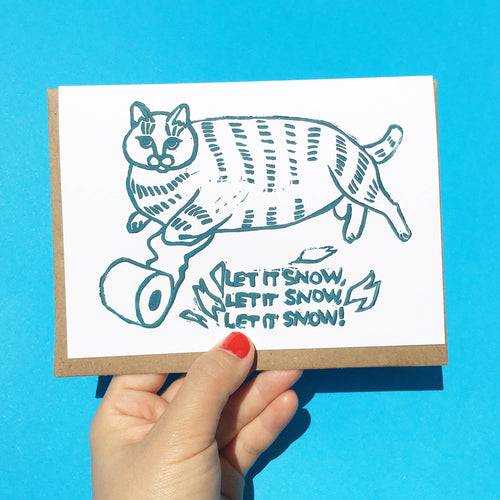 LET IT SNOW,
LET IT SNOW,
LET IT SNOW!